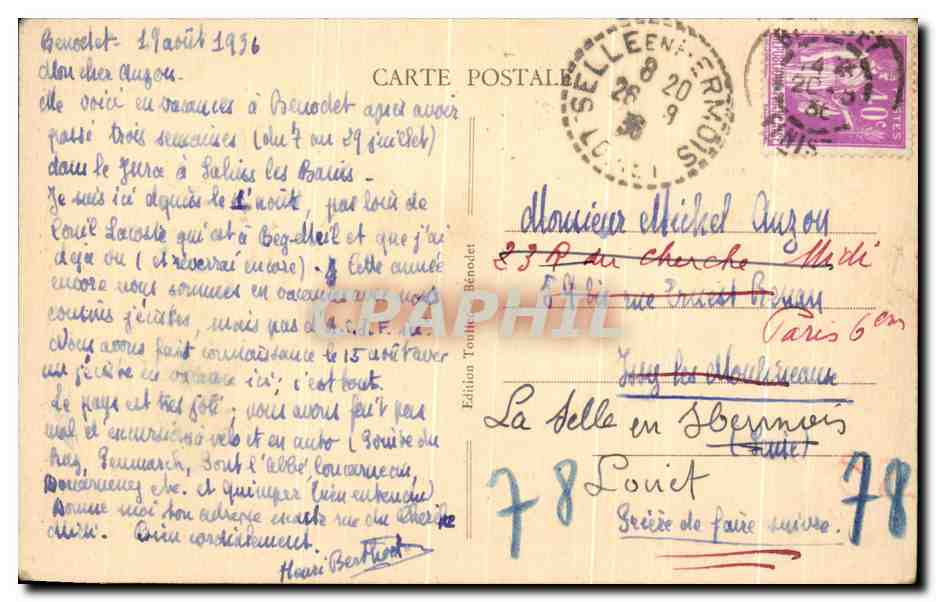 Benodet - 19 août 1936
Mon cher Auzou -
Me voici en vacances à Benodet après avoir
passé trois semaines (du 7 au 29 juillet)
dans le Jura à Salins les Bains -
Je suis ici depuis le 1 août, pas loin de
Louil Lacoste qui est à Beg-Meil et que j'ai
déjà vu (et reverrai encore). Cette année
encore nous sommes en vacances avec nos
cousins jécistes, mais pas d'A.C.J.F.
Nous avons fait connaissance le 15 août avec
un jéciste en vacance ici; c'est tout.
Le pays est très joli; nous avons fait pas
mal d'excursions à vélo et en auto (Pointe du
Raz, Penmarch, Pont l'Abbé, Concarneau,
Douarnenez etc. et Quimper bien entendu)
Donne moi ton adresse exacte rue du Cherche
Midi. Bien cordialement.
Henri Berthod
CARTE POSTALE
Edition Toul Bénodet
SELLE EN HERMOIS
8 20
26 9
36
LOIRET
POSTES
40c
CRAPHIL
Monsieur Michel Auzou
33 R du Cherche Midi
59 bis rue Ernest Renan
Paris 6em
Issy les Moulineaux
La Selle en Hermois
(Seine)
Loiret
78
78
Prière de faire suivre.